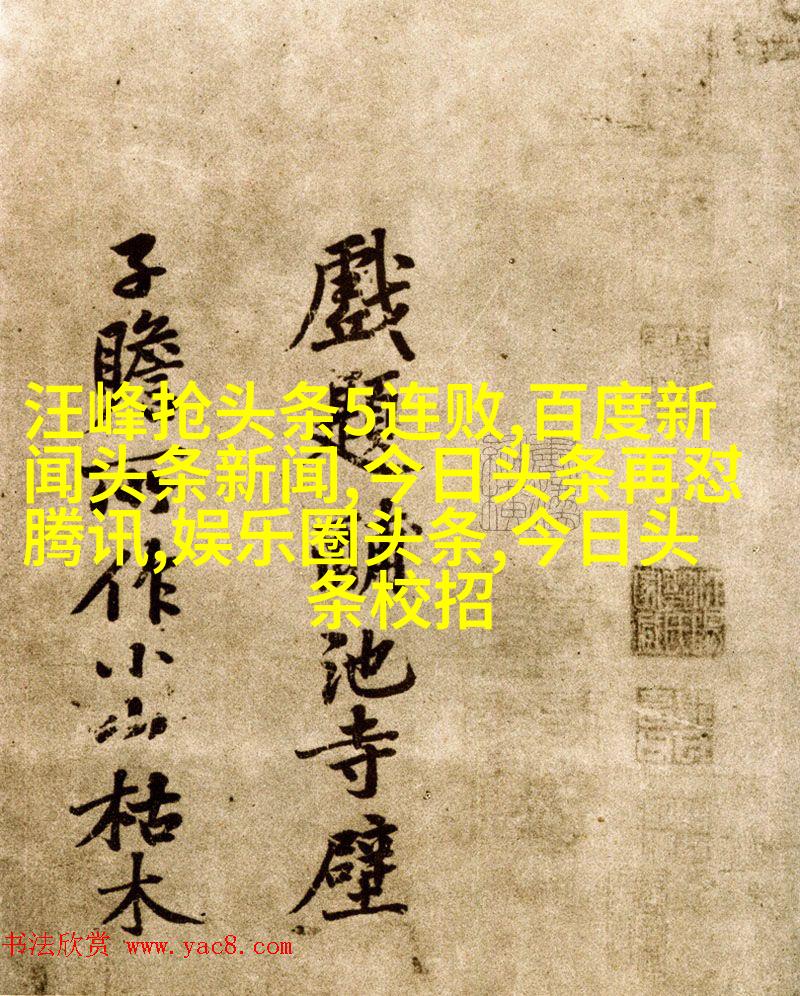 戲題池寺壁
子瞻所作小山枯木
汪峰抢头条5连败,百度新
闻头条新闻,今日头条再怼
腾讯,娱乐圈头条,今日头
条校招
书法欣赏 www.yac8.com